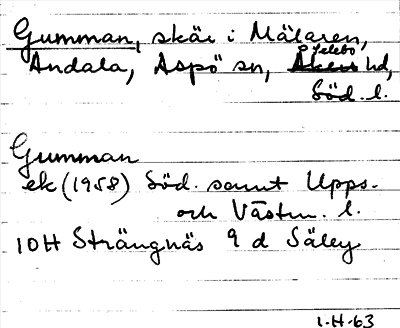 Gumman, skär i Mälaren,
Selebo
Andala, Aspö sn, Åkers hd,
Söd. l.
Gumman
ek (1958) Söd. samt Upps.
och Västm. l.
10H Strängnäs 9 d Säley
1-H-63